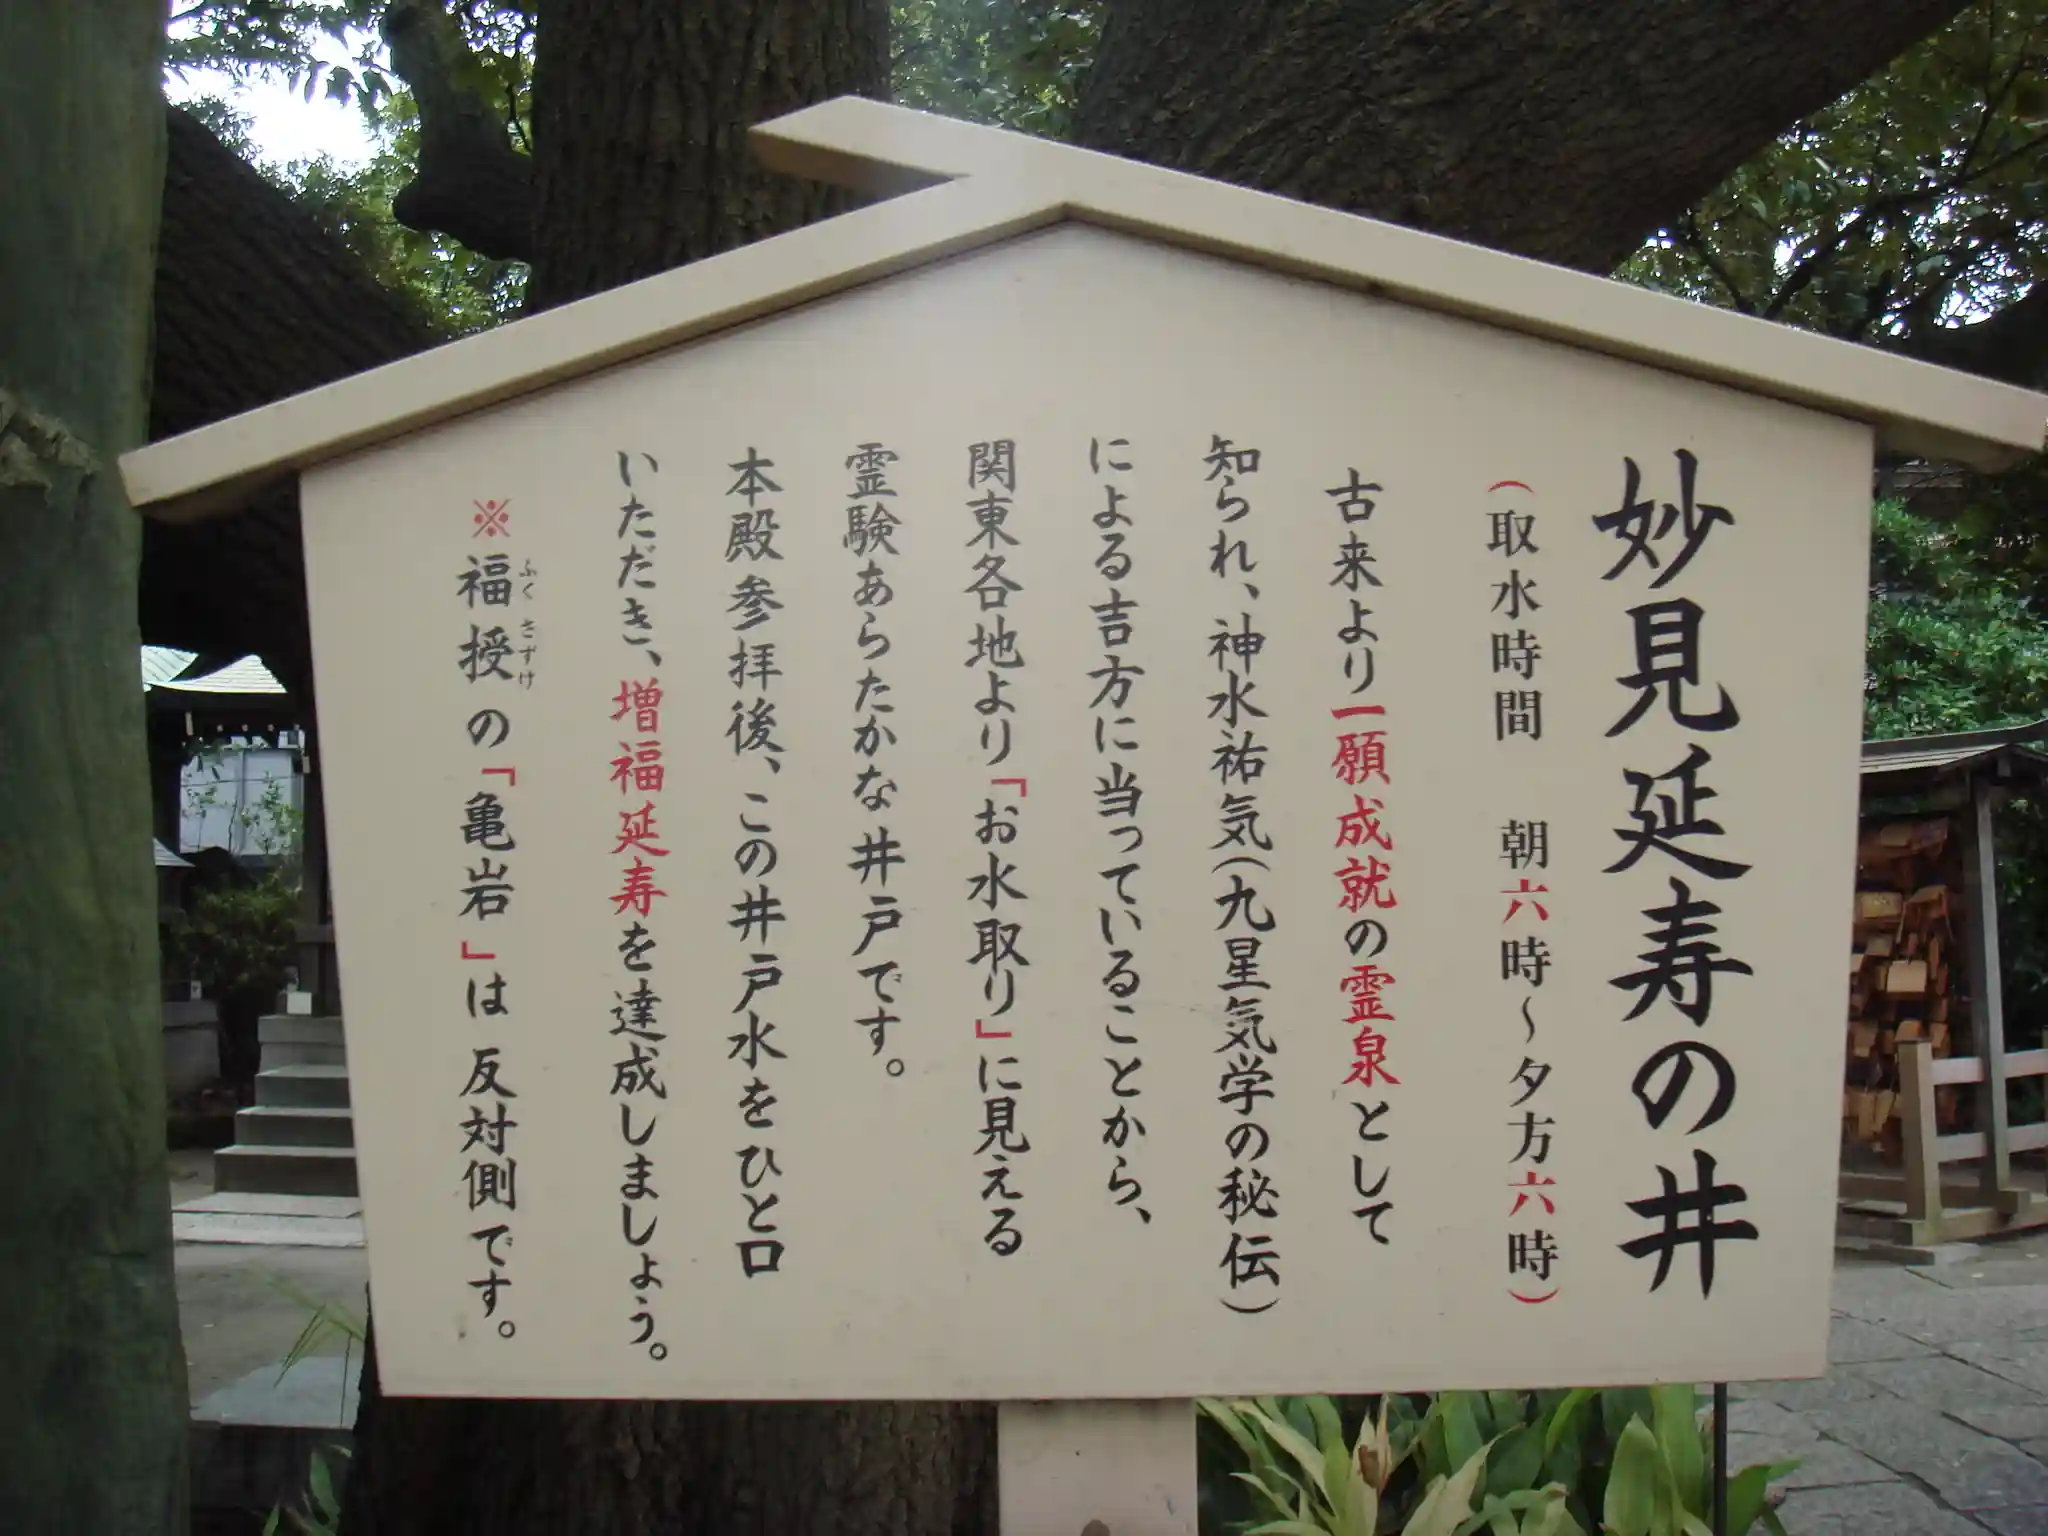 妙見延寿の井
（取水時間　朝六時～夕方六時）
古来より一願成就の霊泉として
知られ、神水祐気（九星気学の秘伝）
による吉方に当っていることから、
関東各地より「お水取り」に見える
霊験あらたかな井戸です。
本殿参拝後、この井戸水をひと口
いただき、増福延寿を達成しましょう。
※福授の「亀岩」は反対側です。
ふくさずけ